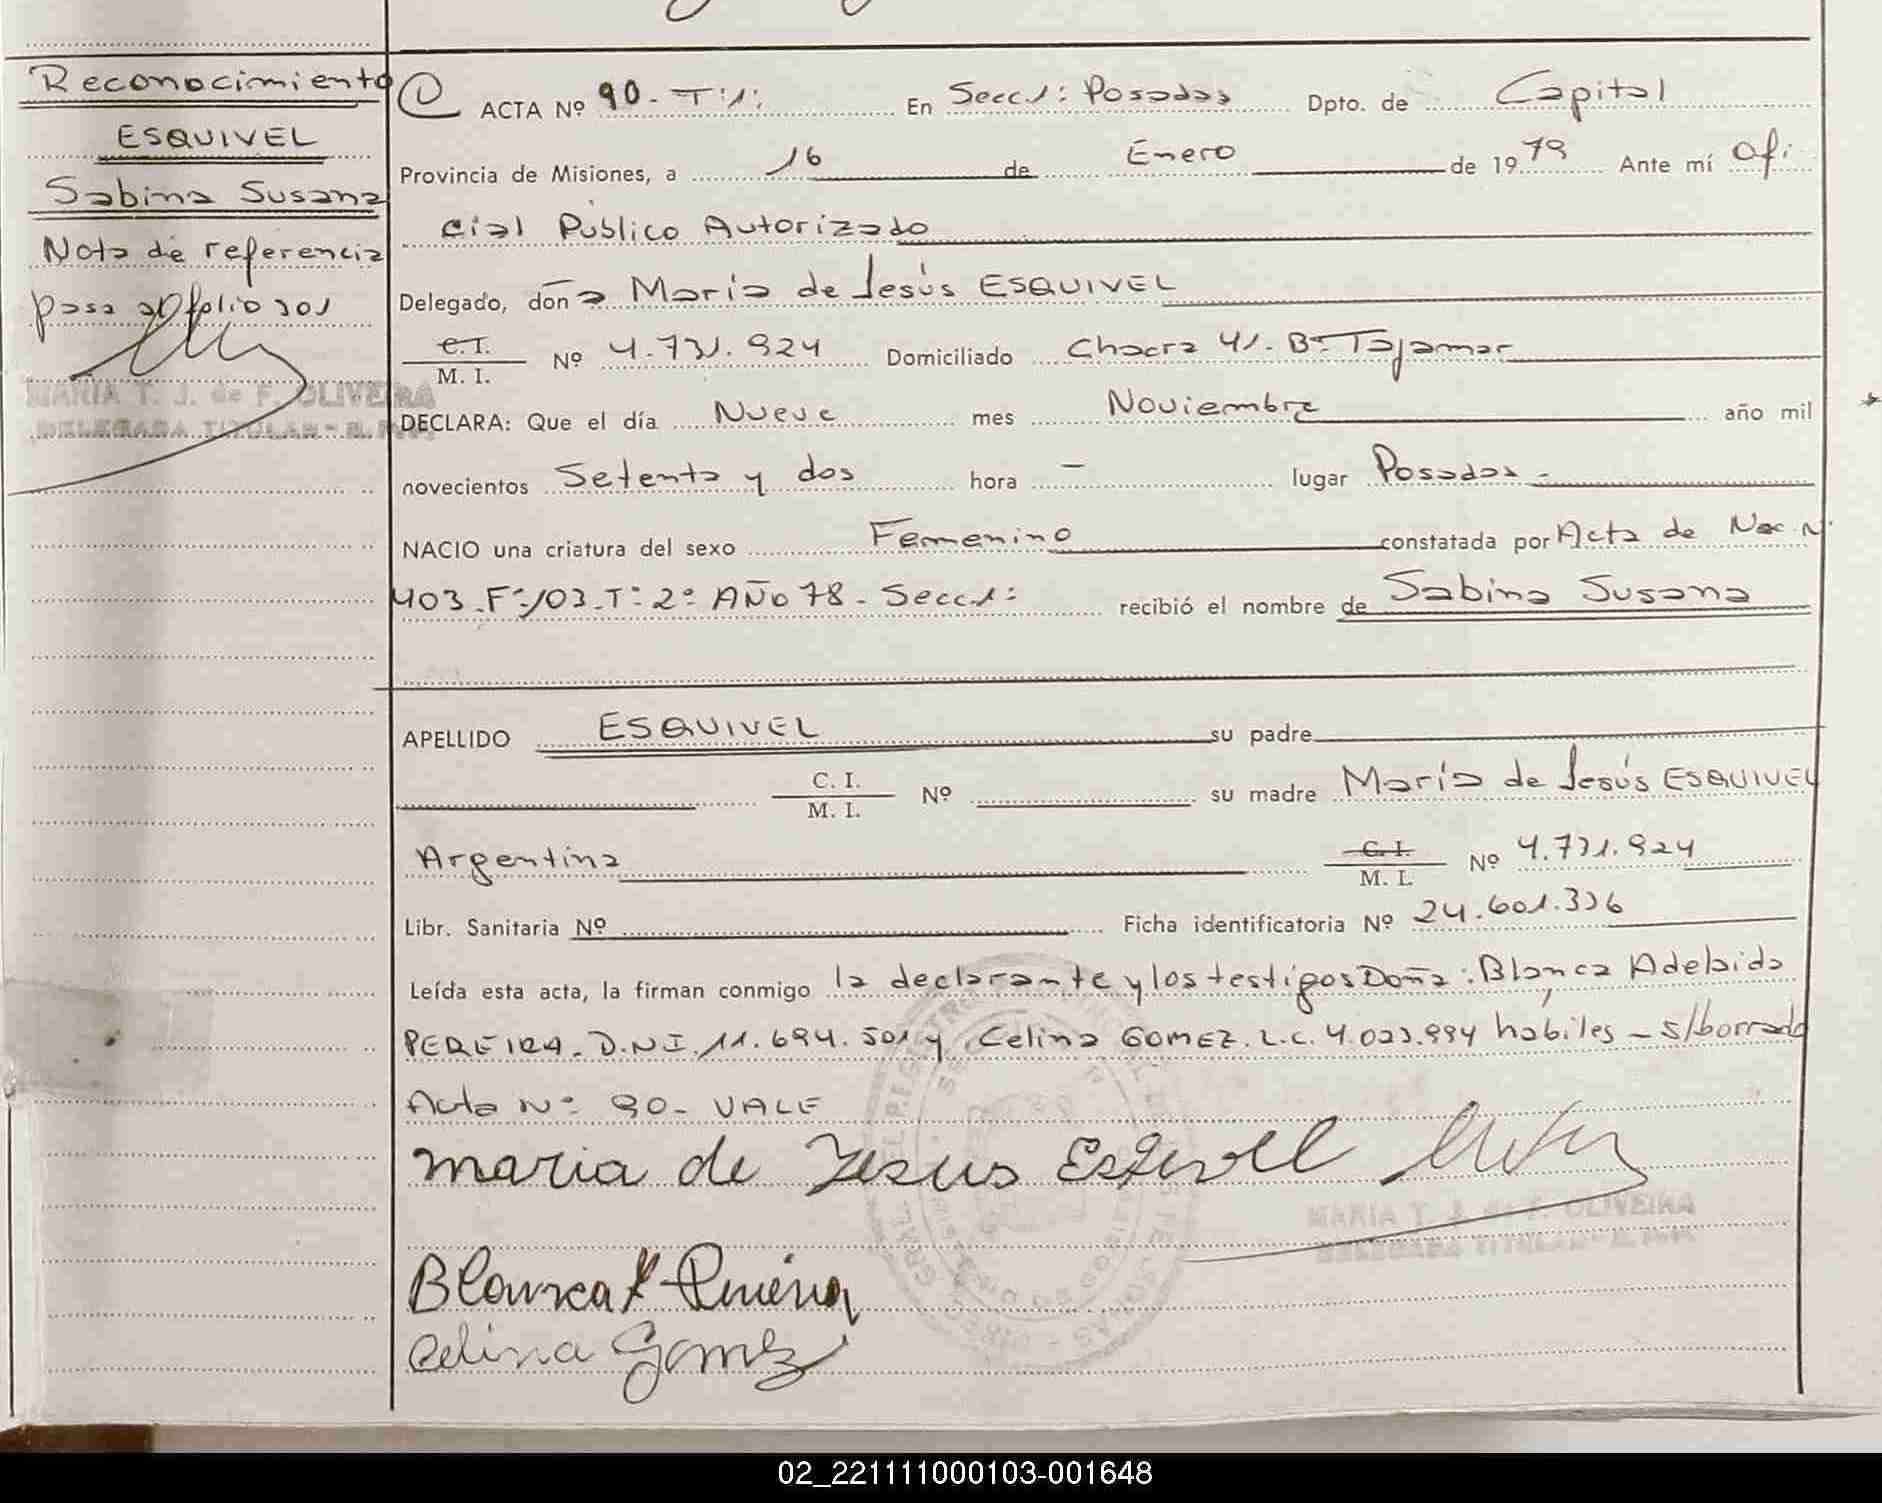 Reconocimiento
ESQUIVEL
Sabina Susana
Nota de referencia
pasa al folio 101
MARIA T. J. de F. OLIVEIRA
DELEGADA TITULAR - R.P.P.
ACTA Nº 90 - T:1: En Secc1: Posadas Dpto. de Capital
Provincia de Misiones, a 16 de Enero de 1979 Ante mí Ofi
cial Público Autorizado
Delegado, doña María de Jesús ESQUIVEL
C.I.
M. I. Nº 4.731.924 Domiciliado Chacra 41. Bº Tajamar
DECLARA: Que el día Nueve mes Noviembre año mil
novecientos Setenta y dos hora - lugar Posadas -
NACIO una criatura del sexo Femenino constatada por Acta de Nac. Nº
403. Fº 103. Tº 2º AÑO 78 - Secc1: recibió el nombre de Sabina Susana
APELLIDO ESQUIVEL su padre
C. I.
M. I. Nº su madre María de Jesús ESQUIVEL
Argentina C. I.
M. I. Nº 4.731.924
Libr. Sanitaria Nº Ficha identificatoria Nº 24.601.336
Leída esta acta, la firman conmigo la declarante y los testigos Doña: Blanca Adelaida
PEREIRA. D.N.I. 11.694.501 y Celina GOMEZ. L.C. 4.023.994 hábiles - s/borrado
Acta Nº 90 - VALE
maria de Jesus Esqivel
MARIA T. J. de F. OLIVEIRA
DELEGADA TITULAR - R.P.P.
Blanca A Pereira
Celina Gomez
02_221111000103-001648